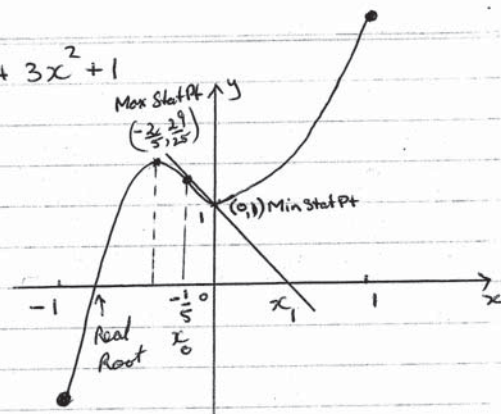 + 3x² + 1
Max Stat Pt
(-2/5, 29/25)
y
1
(0,1) Min Stat Pt
-1
-1/5
0
x₁
1
x
Real
Root
x₀